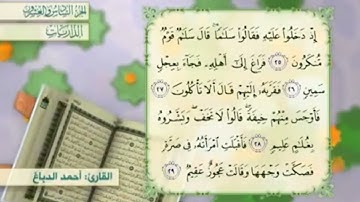 الجزء السادس والعشرون
الذاريات
إِذْ دَخَلُوا۟ عَلَيْهِ فَقَالُوا۟ سَلَٰمًا ۖ قَالَ سَلَٰمٌ قَوْمٌ
مُّنكَرُونَ ٢٥ فَرَاغَ إِلَىٰٓ أَهْلِهِۦ فَجَآءَ بِعِجْلٍ
سَمِينٍ ٢٦ فَقَرَّبَهُۥٓ إِلَيْهِمْ قَالَ أَلَا تَأْكُلُونَ ٢٧
فَأَوْجَسَ مِنْهُمْ خِيفَةً ۖ قَالُوا۟ لَا تَخَفْ ۖ وَبَشَّرُوهُ
بِغُلَٰمٍ عَلِيمٍ ٢٨ فَأَقْبَلَتِ ٱمْرَأَتُهُۥ فِى صَرَّةٍ
فَصَكَّتْ وَجْهَهَا وَقَالَتْ عَجُوزٌ عَقِيمٌ ٢٩
القارئ: أحمد الدباغ